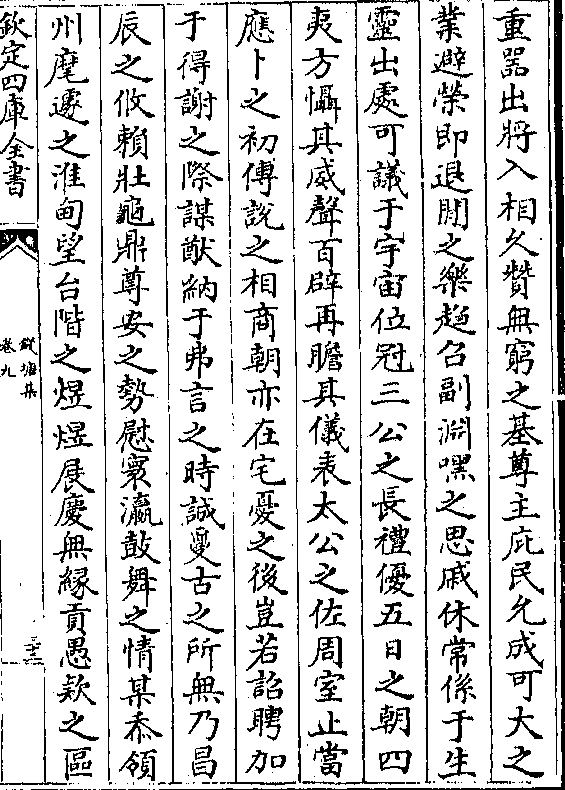 重噐出將入相久贊無窮之基尊主庇民允成可大之
業避榮即退閒之樂趨召副淵嘿之思戚休常係于生
靈出處可議于宇宙位冠三公之長禮優五日之朝四
夷方懾其威聲百辟再瞻其儀表太公之佐周室止當
應卜之初傅說之相商朝亦在宅憂之後豈若詔聘加
于得謝之際謀猷納于弗言之時誠敻古之所無乃昌
辰之攸賴壯龜鼎尊安之勢慰寰瀛鼓舞之情某忝領
州麾遷之淮甸望台階之煜煜展慶無縁貢愚欵之區
欽定四庫全書
錢塘集
卷九
三十三